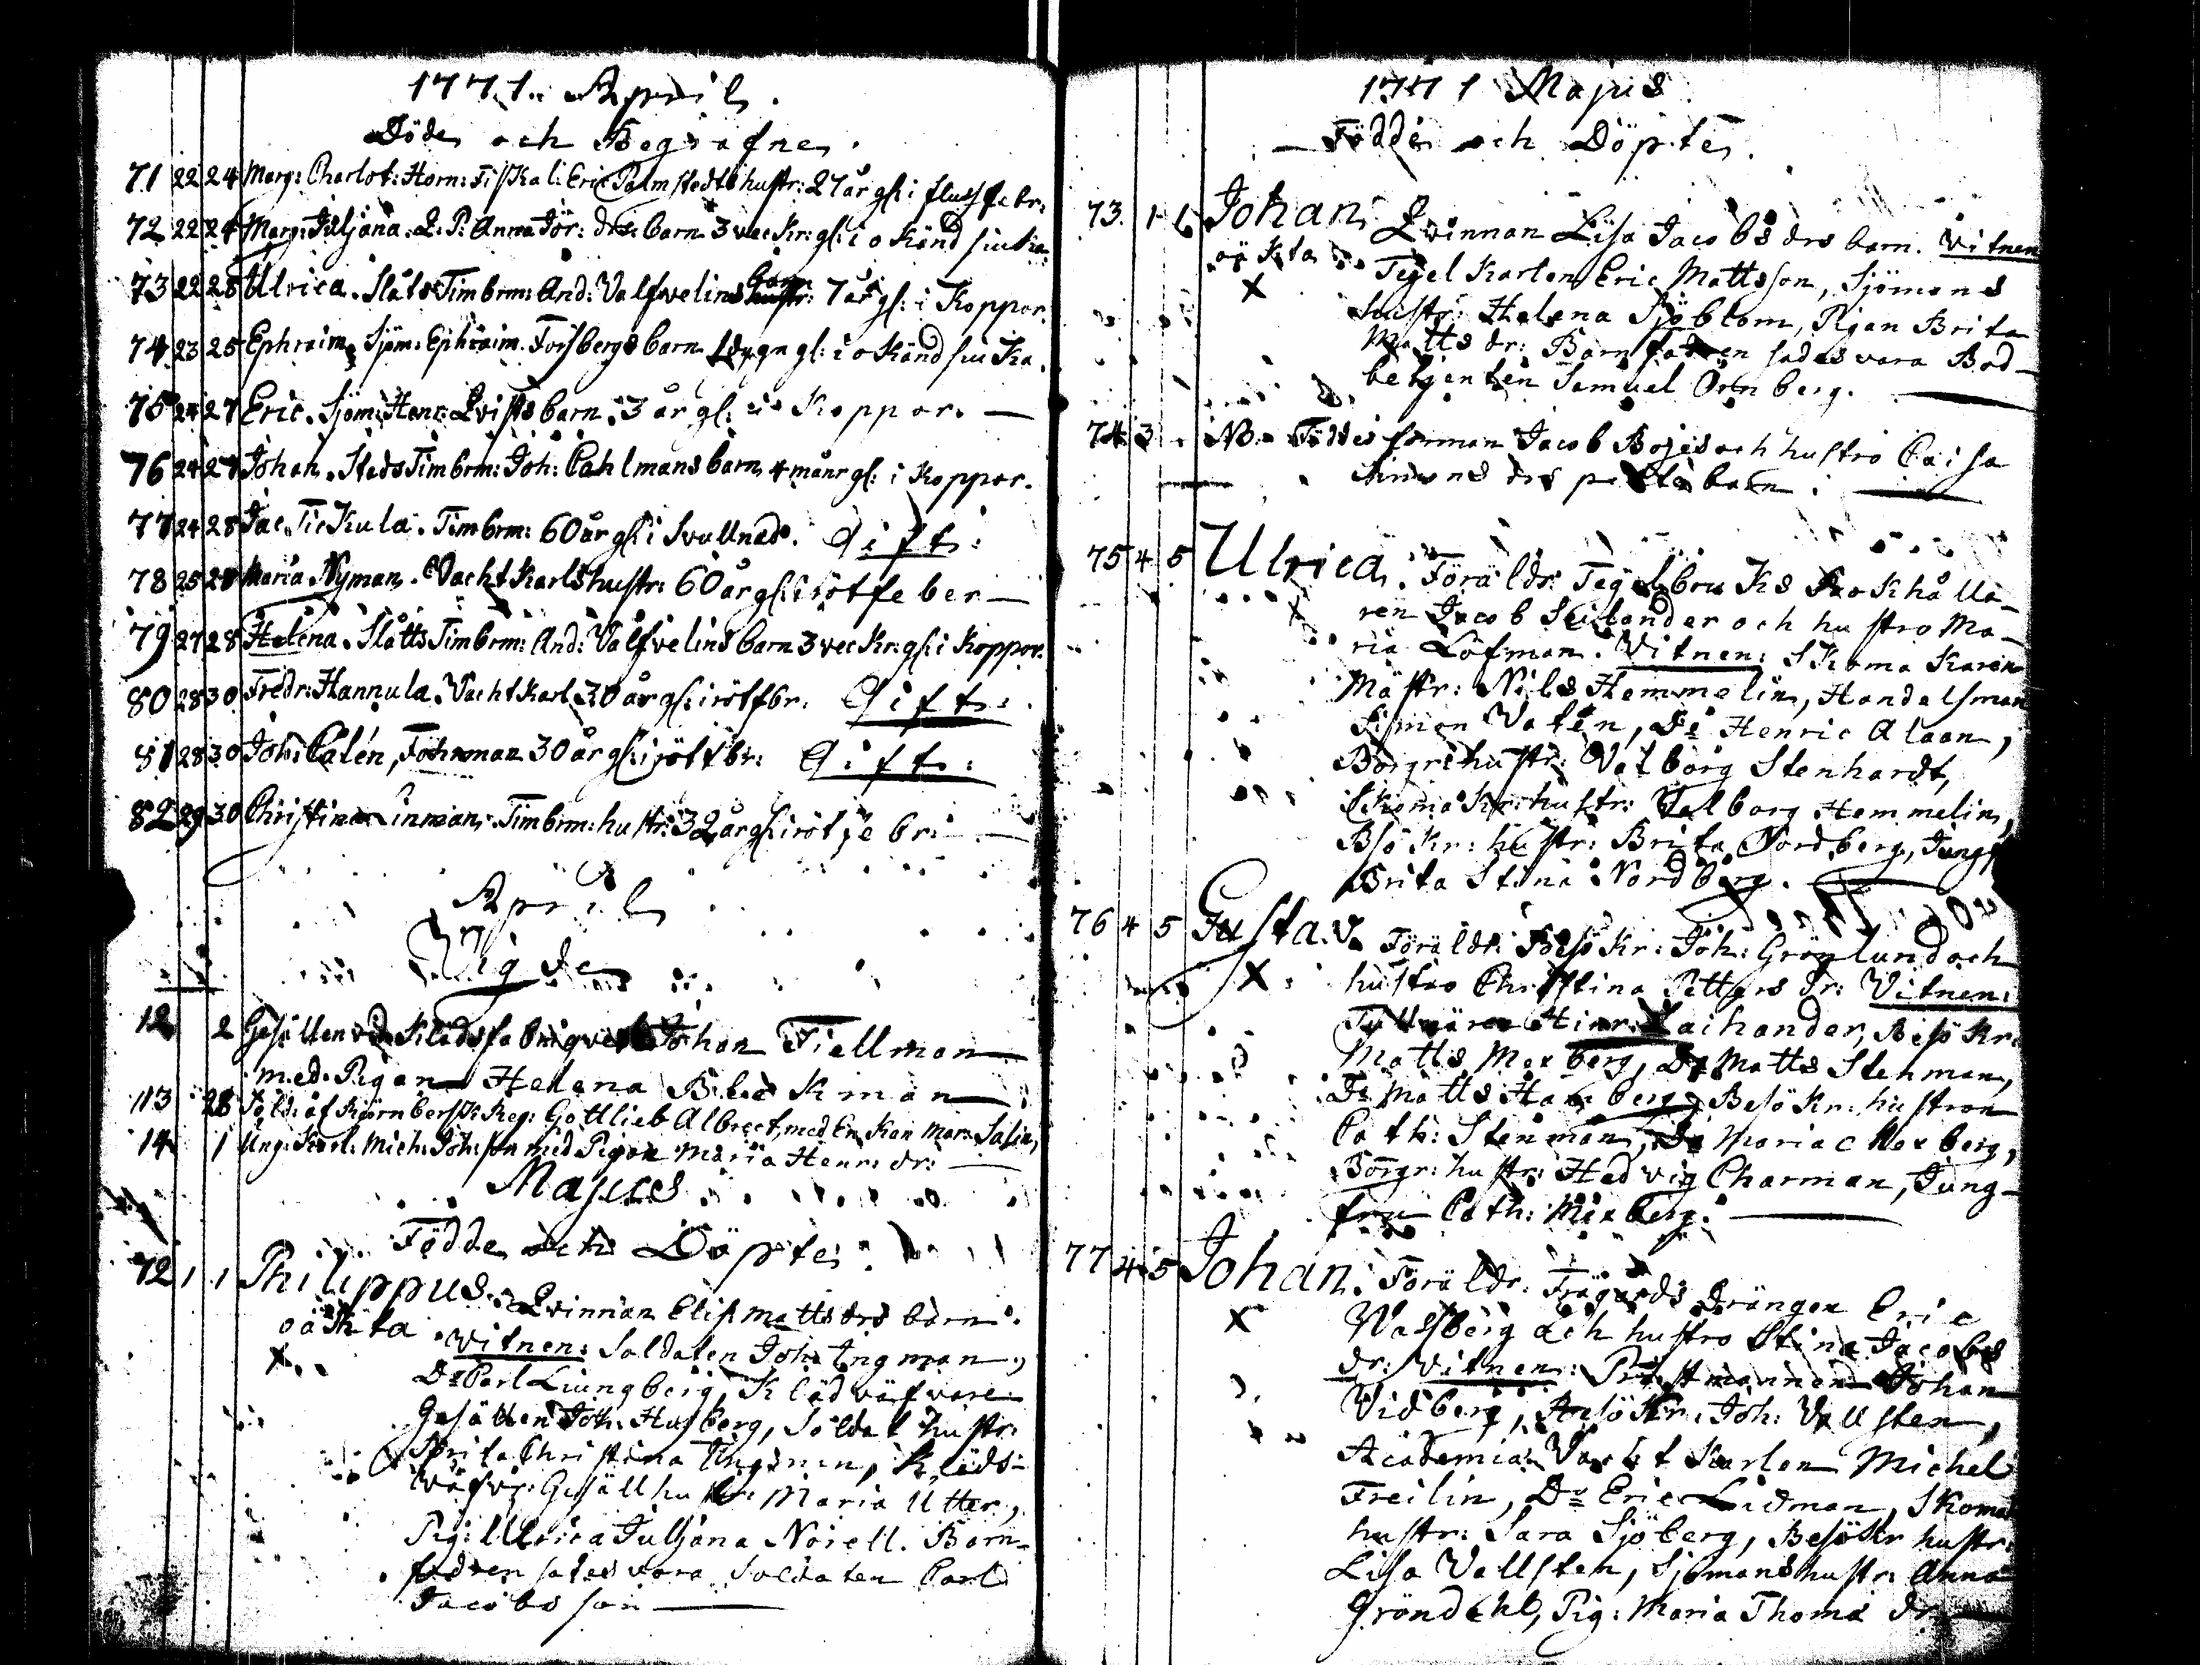 1771. April.
Döde och Begrafne.
71 22 24 Marg: Charlot: Horn: Fiskal: Eric Palmstedts hustr: 27 år gl: i flussfebr:
72 22 24 Marg: Juljana. Q. P. Anna Jör: drs: barn 3 veckr: gl: i okänd siuka
73 22 28 Ulrica. Slåts Timbrm: And: Valfvelins barn 7 år gl: i Koppor.
74 23 25 Ephraim. Sjöm: Ephraim. Forsbergs barn dygn gl: i okänd siuka.
75 24 27 Eric. Sjöm: Henr: Qvists barn. 3 år gl: i Koppor. —
76 24 27 Johan. Stads Timbrm: Joh: Cahlmans barn 4 månr gl: i Koppor.
77 24 28 Jac. Tickula. Timbrm: 60 år gl: i Svullnad. Gift:
78 25 28 Maria Nyman. Vacht Karls hustr: 60 år gl: i rötfeber —
79 27 28 Helena. Slåtts Timbrm: And: Valfvelins barn 3 veckr: gl: i Koppor.
80 28 30 Fredr: Hannula. Vacht karl 30 år gl: i rötfbr. Gift:
81 28 30 Joh: Calén, Fohrman 30 år gl: i rötfbr: Gift:
82 29 30 Christina Linman Timbrm: hustr: 32 år gl: i rötfebr: —
April
Vigde
12 2 Gesällen vid Klädsfabriqvet Johan Tiellman
med Pigan Helena Bleckman
113 28 Sold: af Kiörnbersk: Reg: Gottlieb Albrect, med Enkan Mar: Salin,
14 1 Ung: Karl: Mich: Joh:son med Pigan Maria Henr: dr: —
Majus
Födde och Döpte.
72 1 1 Philippus. Qvinnan Elis Matts drs barn.
oäkta Vitnen: Soldaten Joh: Ingman,
X Do Carl Liungberg, Klädväfvare
Gesällen Joh: Husberg, Soldat hustr:
Brita Christina Ingman, Kläds-
väfvr: Gesäll hustr: Maria Utter,
Pig: Ulrica Juljana Noiell. Barn-
fadren sades vara Soldaten Carl
Jacobsson —
1771 Majus
— Födde och Döpte.
73. 1 6 Johan Qvinnan Lisa Jacobs drs barn. Vitnen
oäkta Tegel Karlen Eric Mattsson, Sjömans
X hustr: Helena Sjöblom, Pigan Brita
Matts dr: Barnfadren sades vara Bod-
betjenten Samuel Örnberg. —
74 3 NB. Föddes forman Jacob Bojes och hustro Caisa
Simons drs barn. —
75 4 5 Ulrica. Föräldr: Tegelbruks Bokhålla-
X ren Jacob Seilander och hustro Ma-
ria Löfman. Vitnen: Skomakaren
Mästr: Nils Hemmelin, Handelsman
Simon Valén, Do Henric Alaan,
Borgr: hustr: Valborg Stenhardt,
Skomakr: hustr: Valborg Hemmelin,
Bsökr: hustr: Brita Nordberg, Jungf
Brita Stina Nordberg.
76 4 5 Gustav. Föräldr: Besökr: Joh: Grönlund och
X hustro Christina Petters dr: Vitnen:
Tullnären Henr: Laihander, Besökr:
Matts Maxberg, Do Matts Stenman,
Do Matts Hamberg, Besökr: hustron
Cath: Stenman, Do Maria Maxberg,
Borgr: hustr: Hedvig Charman, Jung-
fru Cath: Maxberg. —
77 4 5 Johan. Föräldr: Trägårds drängen Eric
X Vassberg och hustro Stina Jacobs
dr: Vitnen: Postmannen Johan
Vidberg, Besökr: Joh: Vallsten,
Academiæ Vacht Karlen Michel
Freilin, Do Eric Lidman, Skoma
hustr: Sara Sjöberg, Besökr hustr:
Lisa Vallsten, Sjömans hustr: Anna
Gröndahl, Pig: Maria Thomæ dr —